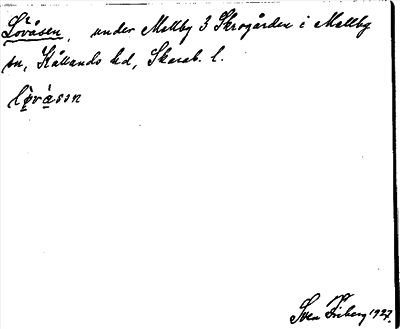 Lovåsen, under Mellby 3 Skrogården i Mellby
sn, Kållands hd, Skarab. l.
Sven Friberg 1927.